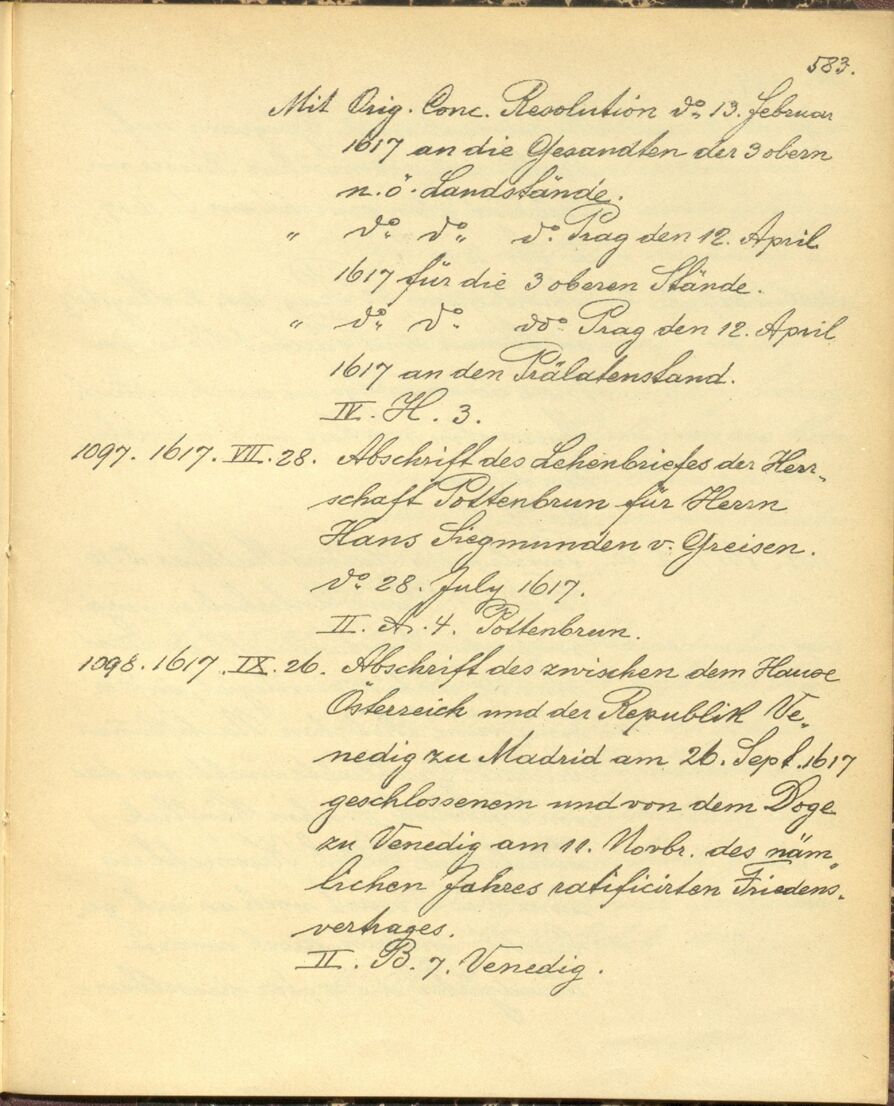 583.
Mit Orig. Conc. Resolution dº 13. Februar
1617 an die Gesandten der 3 obern
n. ö. Landstände.
" dº dº dº Prag den 12. April
1617 für die 3 oberen Stände.
" dº dº ddº Prag den 12. April
1617 an den Prälatenstand.
IV. H. 3.
1097. 1617. VII. 28. Abschrift des Lehenbriefes der Herr-
schaft Pottenbrun für Herrn
Hans Siegmunden v. Greisen.
dº 28. July 1617.
II. A. 4. Pottenbrun.
1098. 1617. IX. 26. Abschrift des zwischen dem Hause
Österreich und der Republik Ve-
nedig zu Madrid am 26. Sept. 1617
geschlossenem und von dem Doge
zu Venedig am 11. Novbr. des näm-
lichen Jahres ratificirten Friedens-
vertrages.
II. B. 7. Venedig.